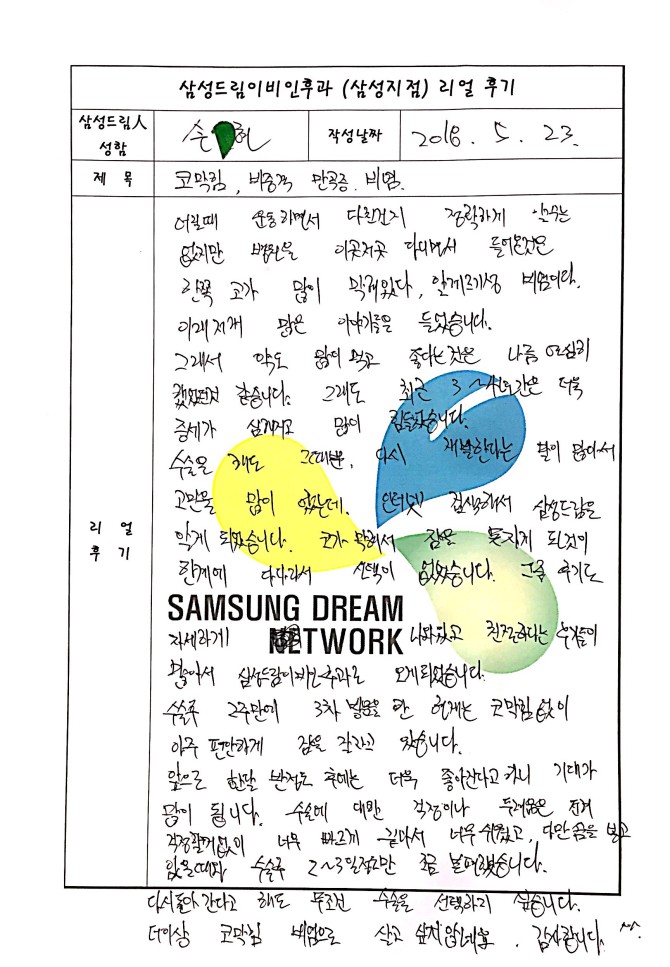 삼성드림이비인후과 (삼성지점) 리얼 후기
삼성드림人 성함
손 허
작성날짜
2018. 5. 23.
제 목
코막힘, 비중격 만곡증. 비염.
리얼 후기
어릴때 운동하면서 다친건지 정확하게 알수는
없지만 병원을 이곳저곳 다니면서 들어온것은
왼쪽 코가 많이 막혀있다, 알레르기성 비염이다.
이래저래 많은 이야기를 들었습니다.
그래서 약도 많이 먹고 좋다는것은 나름 열심히
했었던것 같습니다. 그래도 최근 3~4년간은 더욱
증세가 심해지고 많이 힘들었습니다.
수술을 해도 그때뿐, 다시 재발한다는 말이 많아서
고민을 많이 했는데. 인터넷 검색해서 삼성드림을
알게 되었습니다. 코가 막혀서 잠을 못자게 된것이
한계에 다다라서 선택이 없었습니다. 그중 후기도
SAMSUNG DREAM
NETWORK
자세하게 나와있고 친절하다는 후기들이
많아서 삼성드림이비인후과로 오게되었습니다.
수술후 2주만에 3차 방문을 한 현재는 코막힘 없이
아주 편안하게 잠을 잘자고 있습니다.
앞으로 한달 반정도 후에는 더욱 좋아진다고 하니 기대가
많이 됩니다. 수술에 대한 걱정이나 두려움은 전혀
걱정할꺼없이 너무 빠르게 끝나서 너무 쉬웠고, 다만 솜을 넣고
있을때와 수술후 2~3일정도만 조금 불편했습니다.
다시돌아 간다고 해도 무조건 수술을 선택하지 싶습니다.
더이상 코막힘 비염으로 살고 싶지않네요. 감사합니다. ^^.